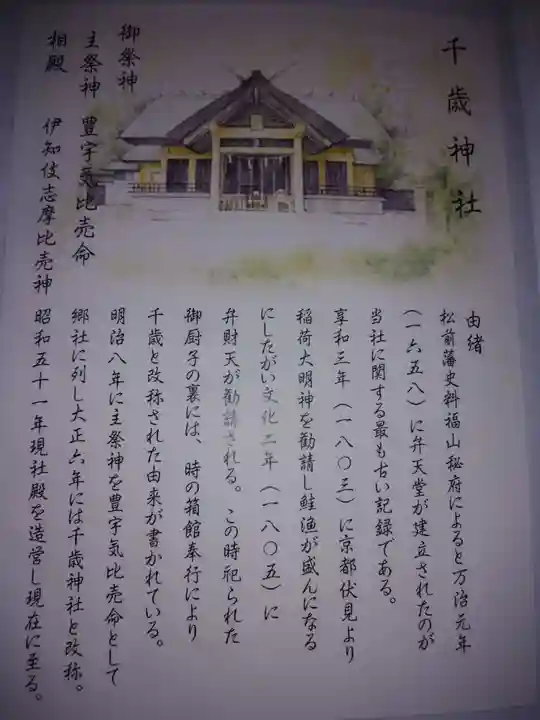 千歳神社
御祭神
主祭神　豊宇気比売命
相殿　伊知伎志摩比売神
由緒
松前藩史料福山秘府によると万治元年
（一六五八）に弁天堂が建立されたのが
当社に関する最も古い記録である。
享和三年（一八〇三）に京都伏見より
稲荷大明神を勧請し鮭漁が盛んになる
にしたがい文化二年（一八〇五）に
弁財天が勧請される。この時祀られた
御厨子の裏には、時の箱館奉行により
千歳と改称された由来が書かれている。
明治八年に主祭神を豊宇気比売命として
郷社に列し大正六年には千歳神社と改称。
昭和五十一年現社殿を造営し現在に至る。